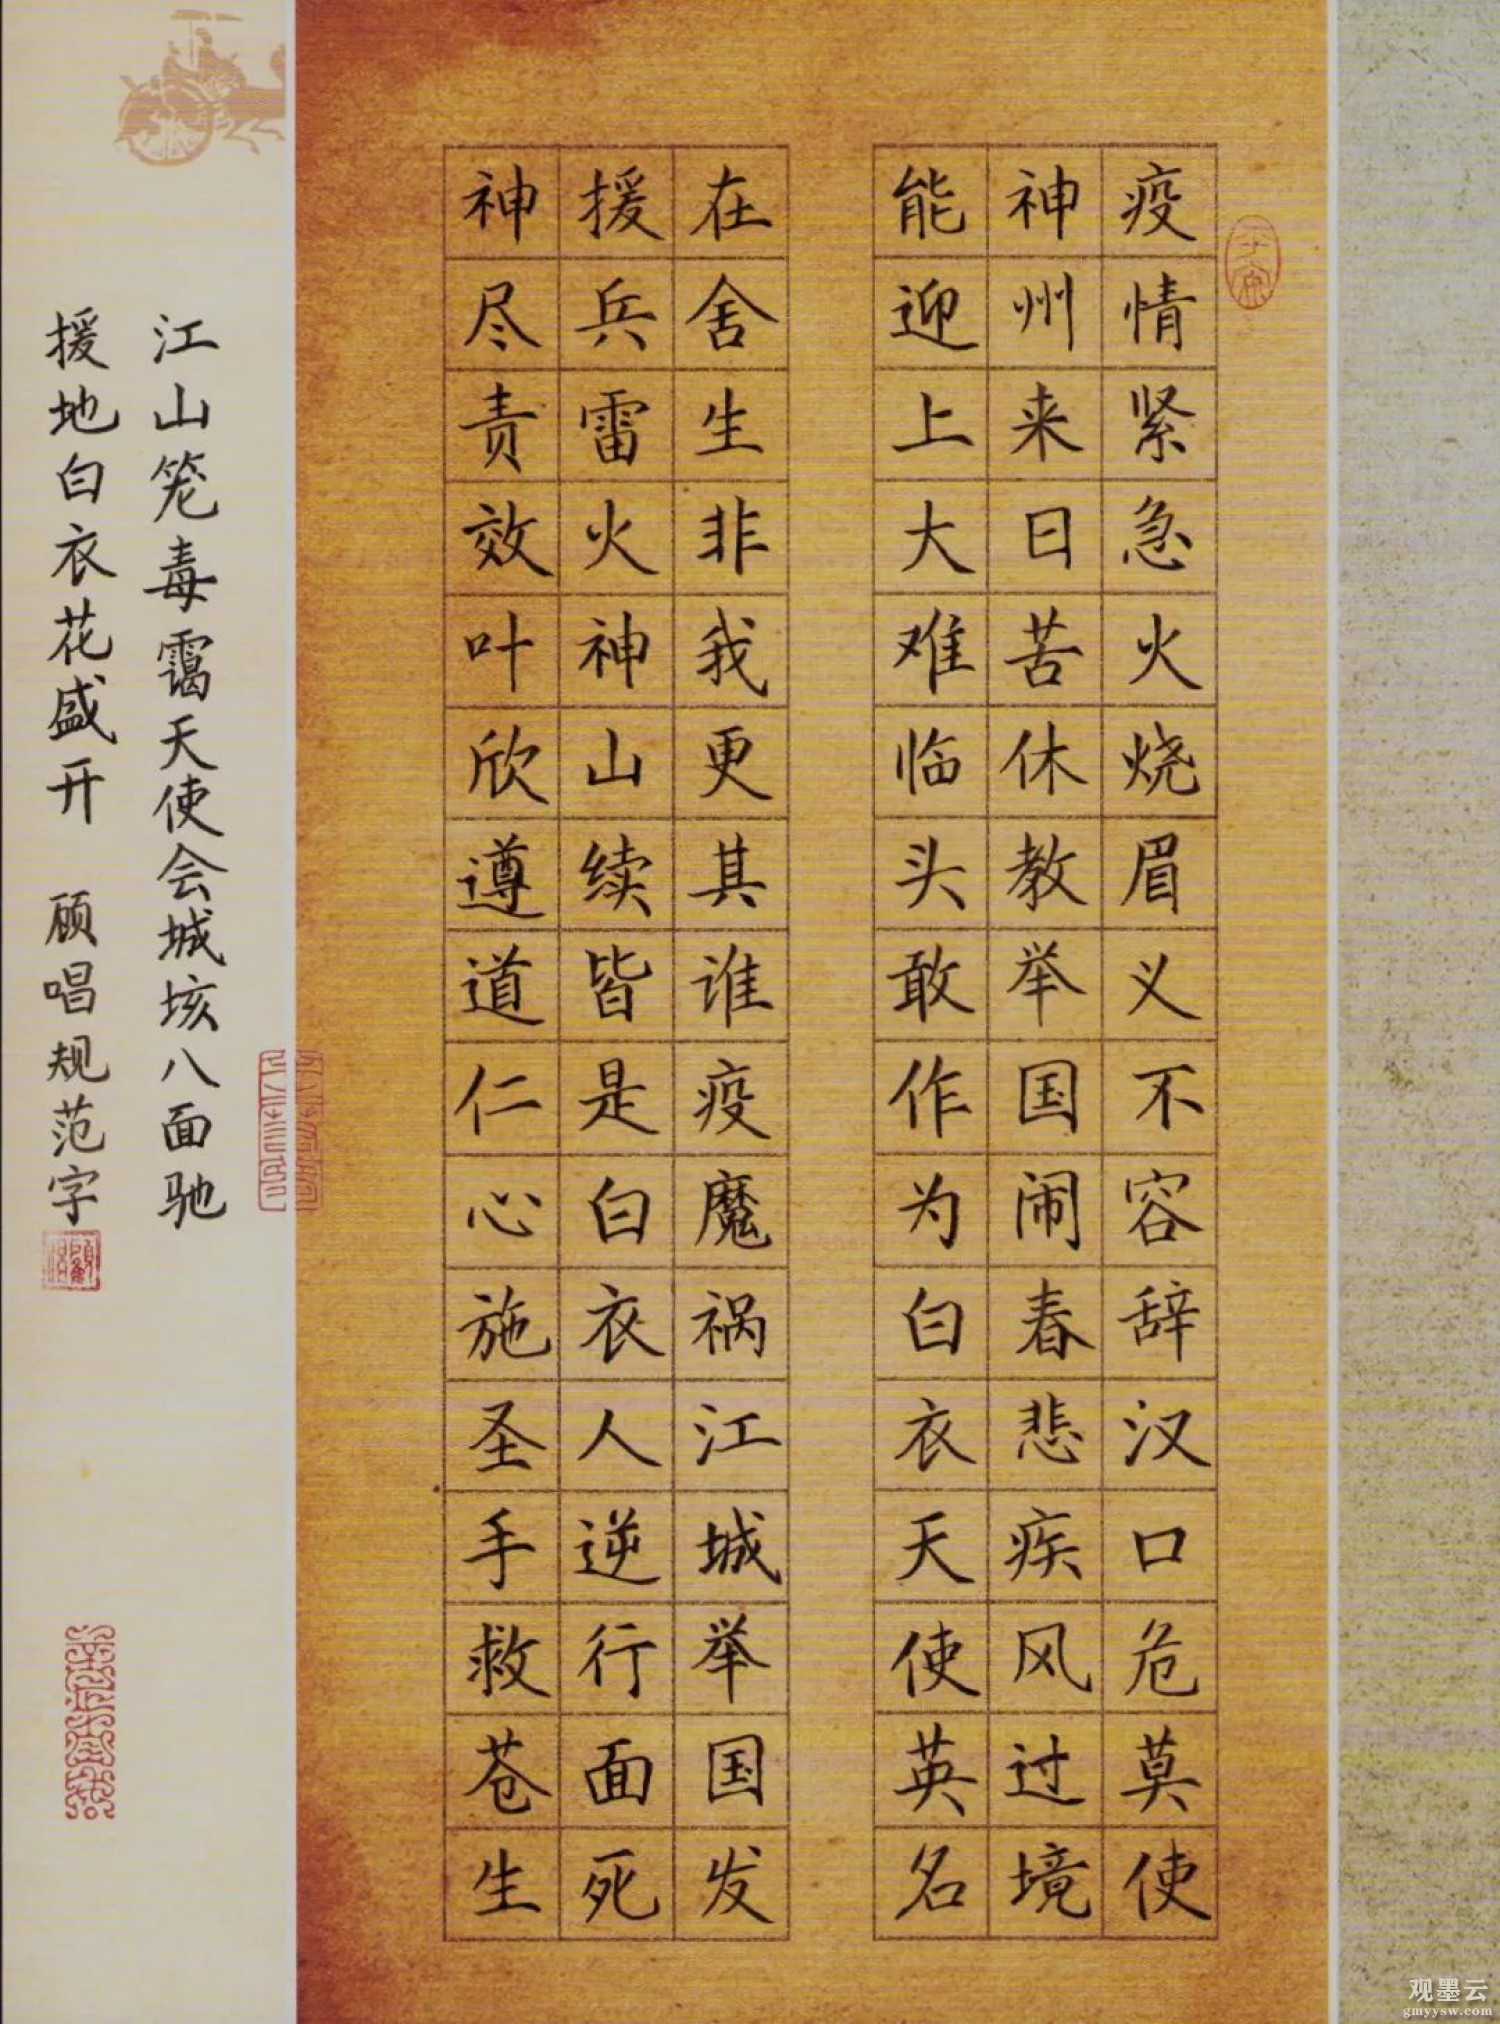 疫情紧急火烧眉义不容辞汉口危莫使
神州来日苦休教举国闹春悲疾风过境
能迎上大难临头敢作为白衣天使英名
在舍生非我更其谁疫魔祸江城举国发
援兵雷火神山续皆是白衣人逆行面死
神尽责效叶欣遵道仁心施圣手救苍生
江山笼毒霭天使会城垓八面驰
援地白衣花盛开 顾唱规范字
观墨云
gmyysw.com